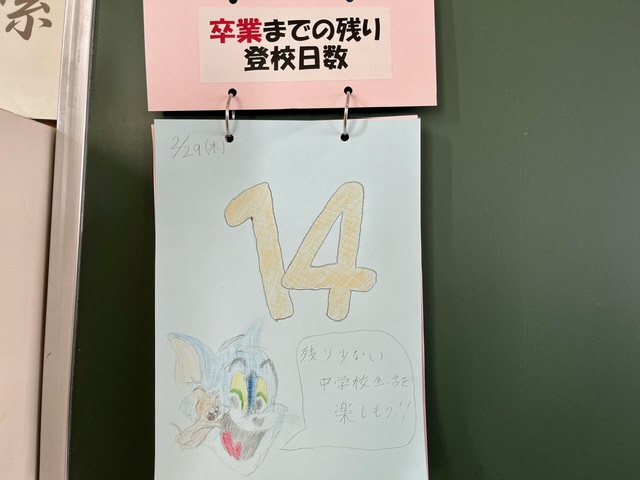 卒業までの残り
登校日数
2/29(木)
14
残り少ない
中学校生活を
楽しもう!!